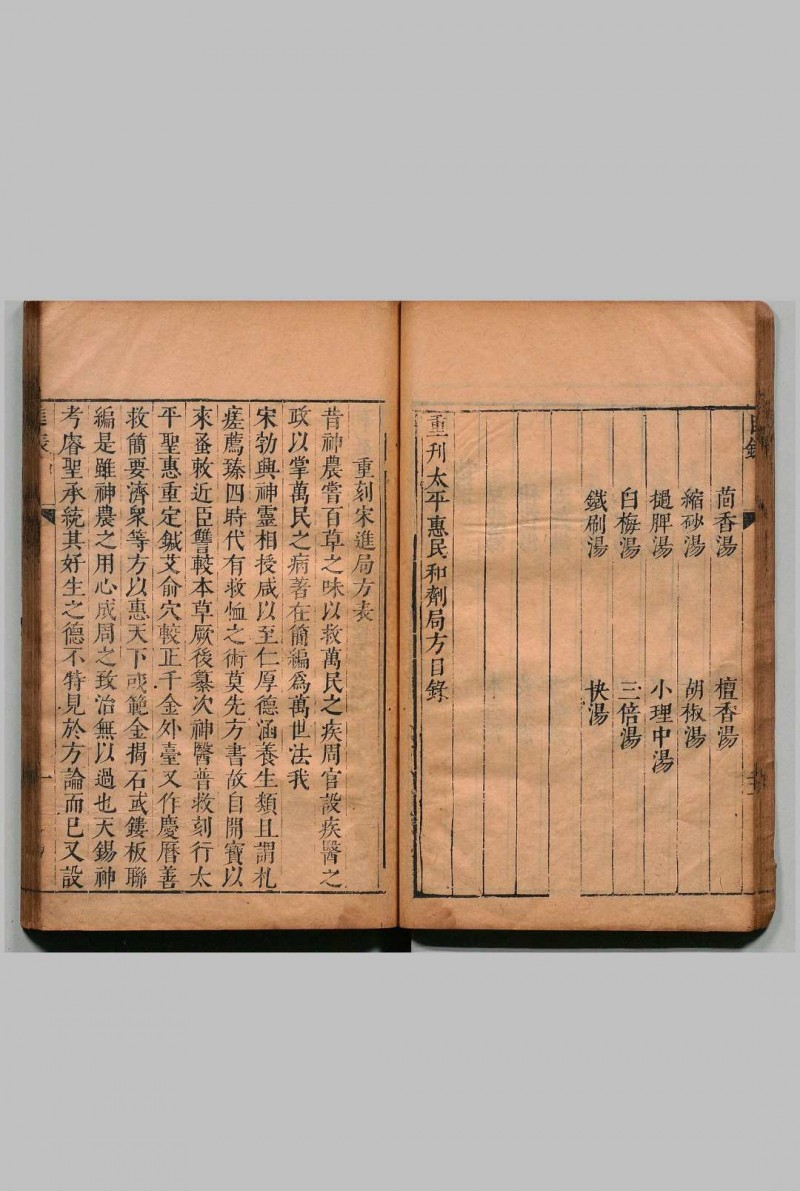 目錄
茴香湯 檀香湯
縮砂湯 胡椒湯
搥脾湯 小理中湯
白梅湯 三倍湯
鐵刷湯 快湯
重刊太平惠民和劑局方目錄
重刻宋進局方表
昔神農嘗百草之味以救萬民之疾周官設疾醫之
政以掌萬民之病著在簡編爲萬世法我
宋勃興神靈相授咸以至仁厚德涵養生類且謂札
瘥薦臻四時代有救恤之術莫先方書故自開寶以
來蚤敕近臣讐較本草厥後纂次神醫普救刻行太
平聖惠重定鍼艾俞穴較正千金外臺又作慶曆善
救簡要濟衆等方以惠天下或範金揭石或鏤板聯
編是雖神農之用心成周之致治無以過也天錫神
考睿聖承統其好生之德不特見於方論而已又設
進表
一